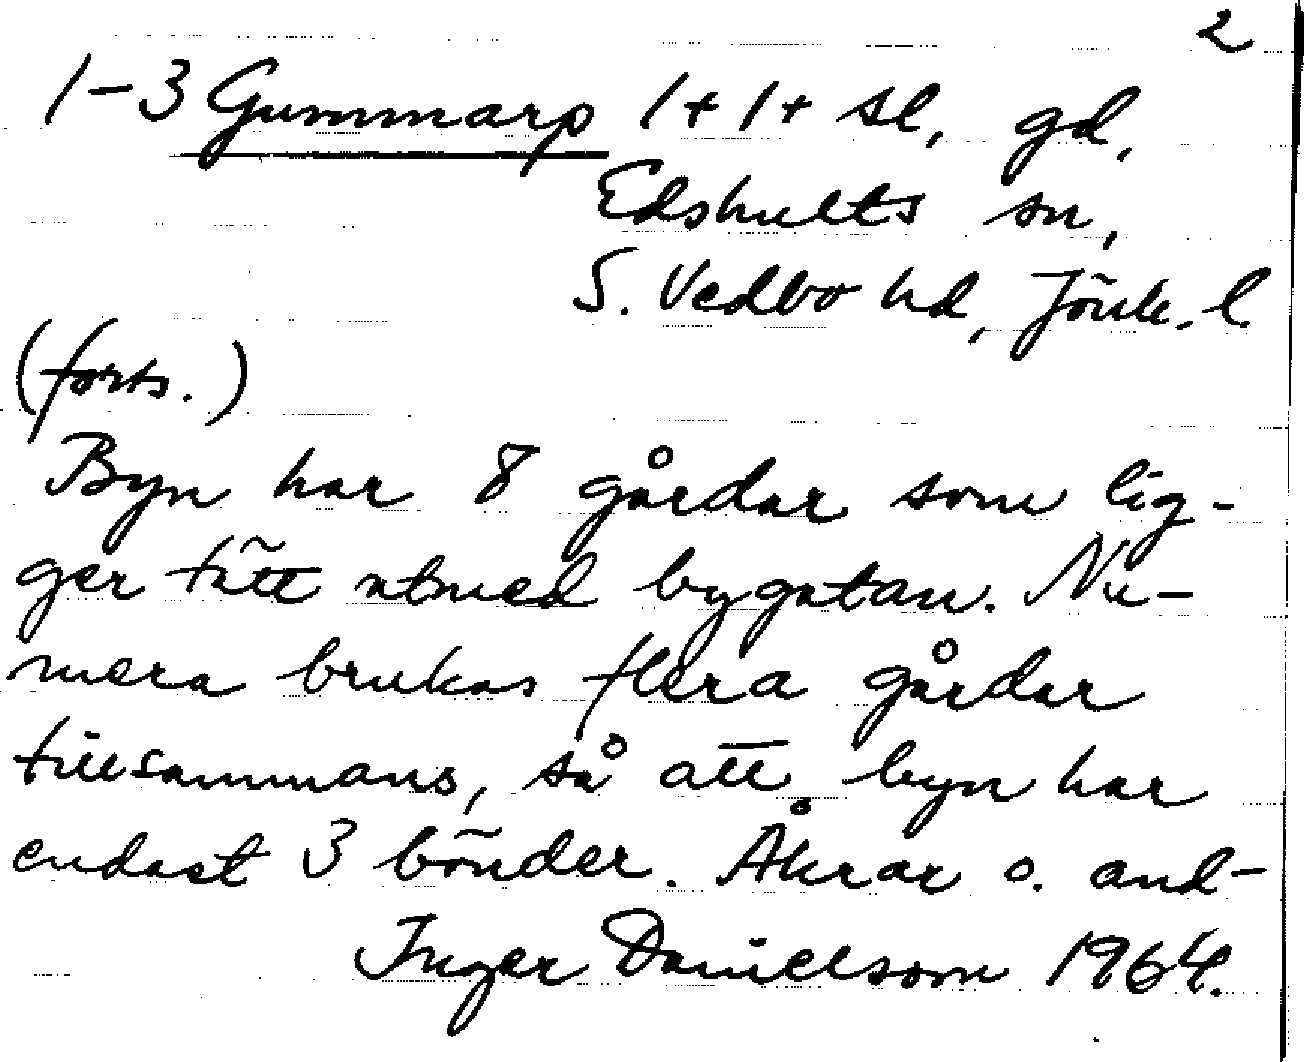 2
1-3 Gummarp 1+1+ sl, gd,
Edshults sn,
S. Vedbo hd, Jönk. l.
(forts.)
Byn har 8 gårdar som lig-
ger tätt utmed bygatan. Nu-
mera brukas flera gårdar
tillsammans, så att byn har
endast 3 bönder. Åkrar o. and-
Inger Danielsson 1964.